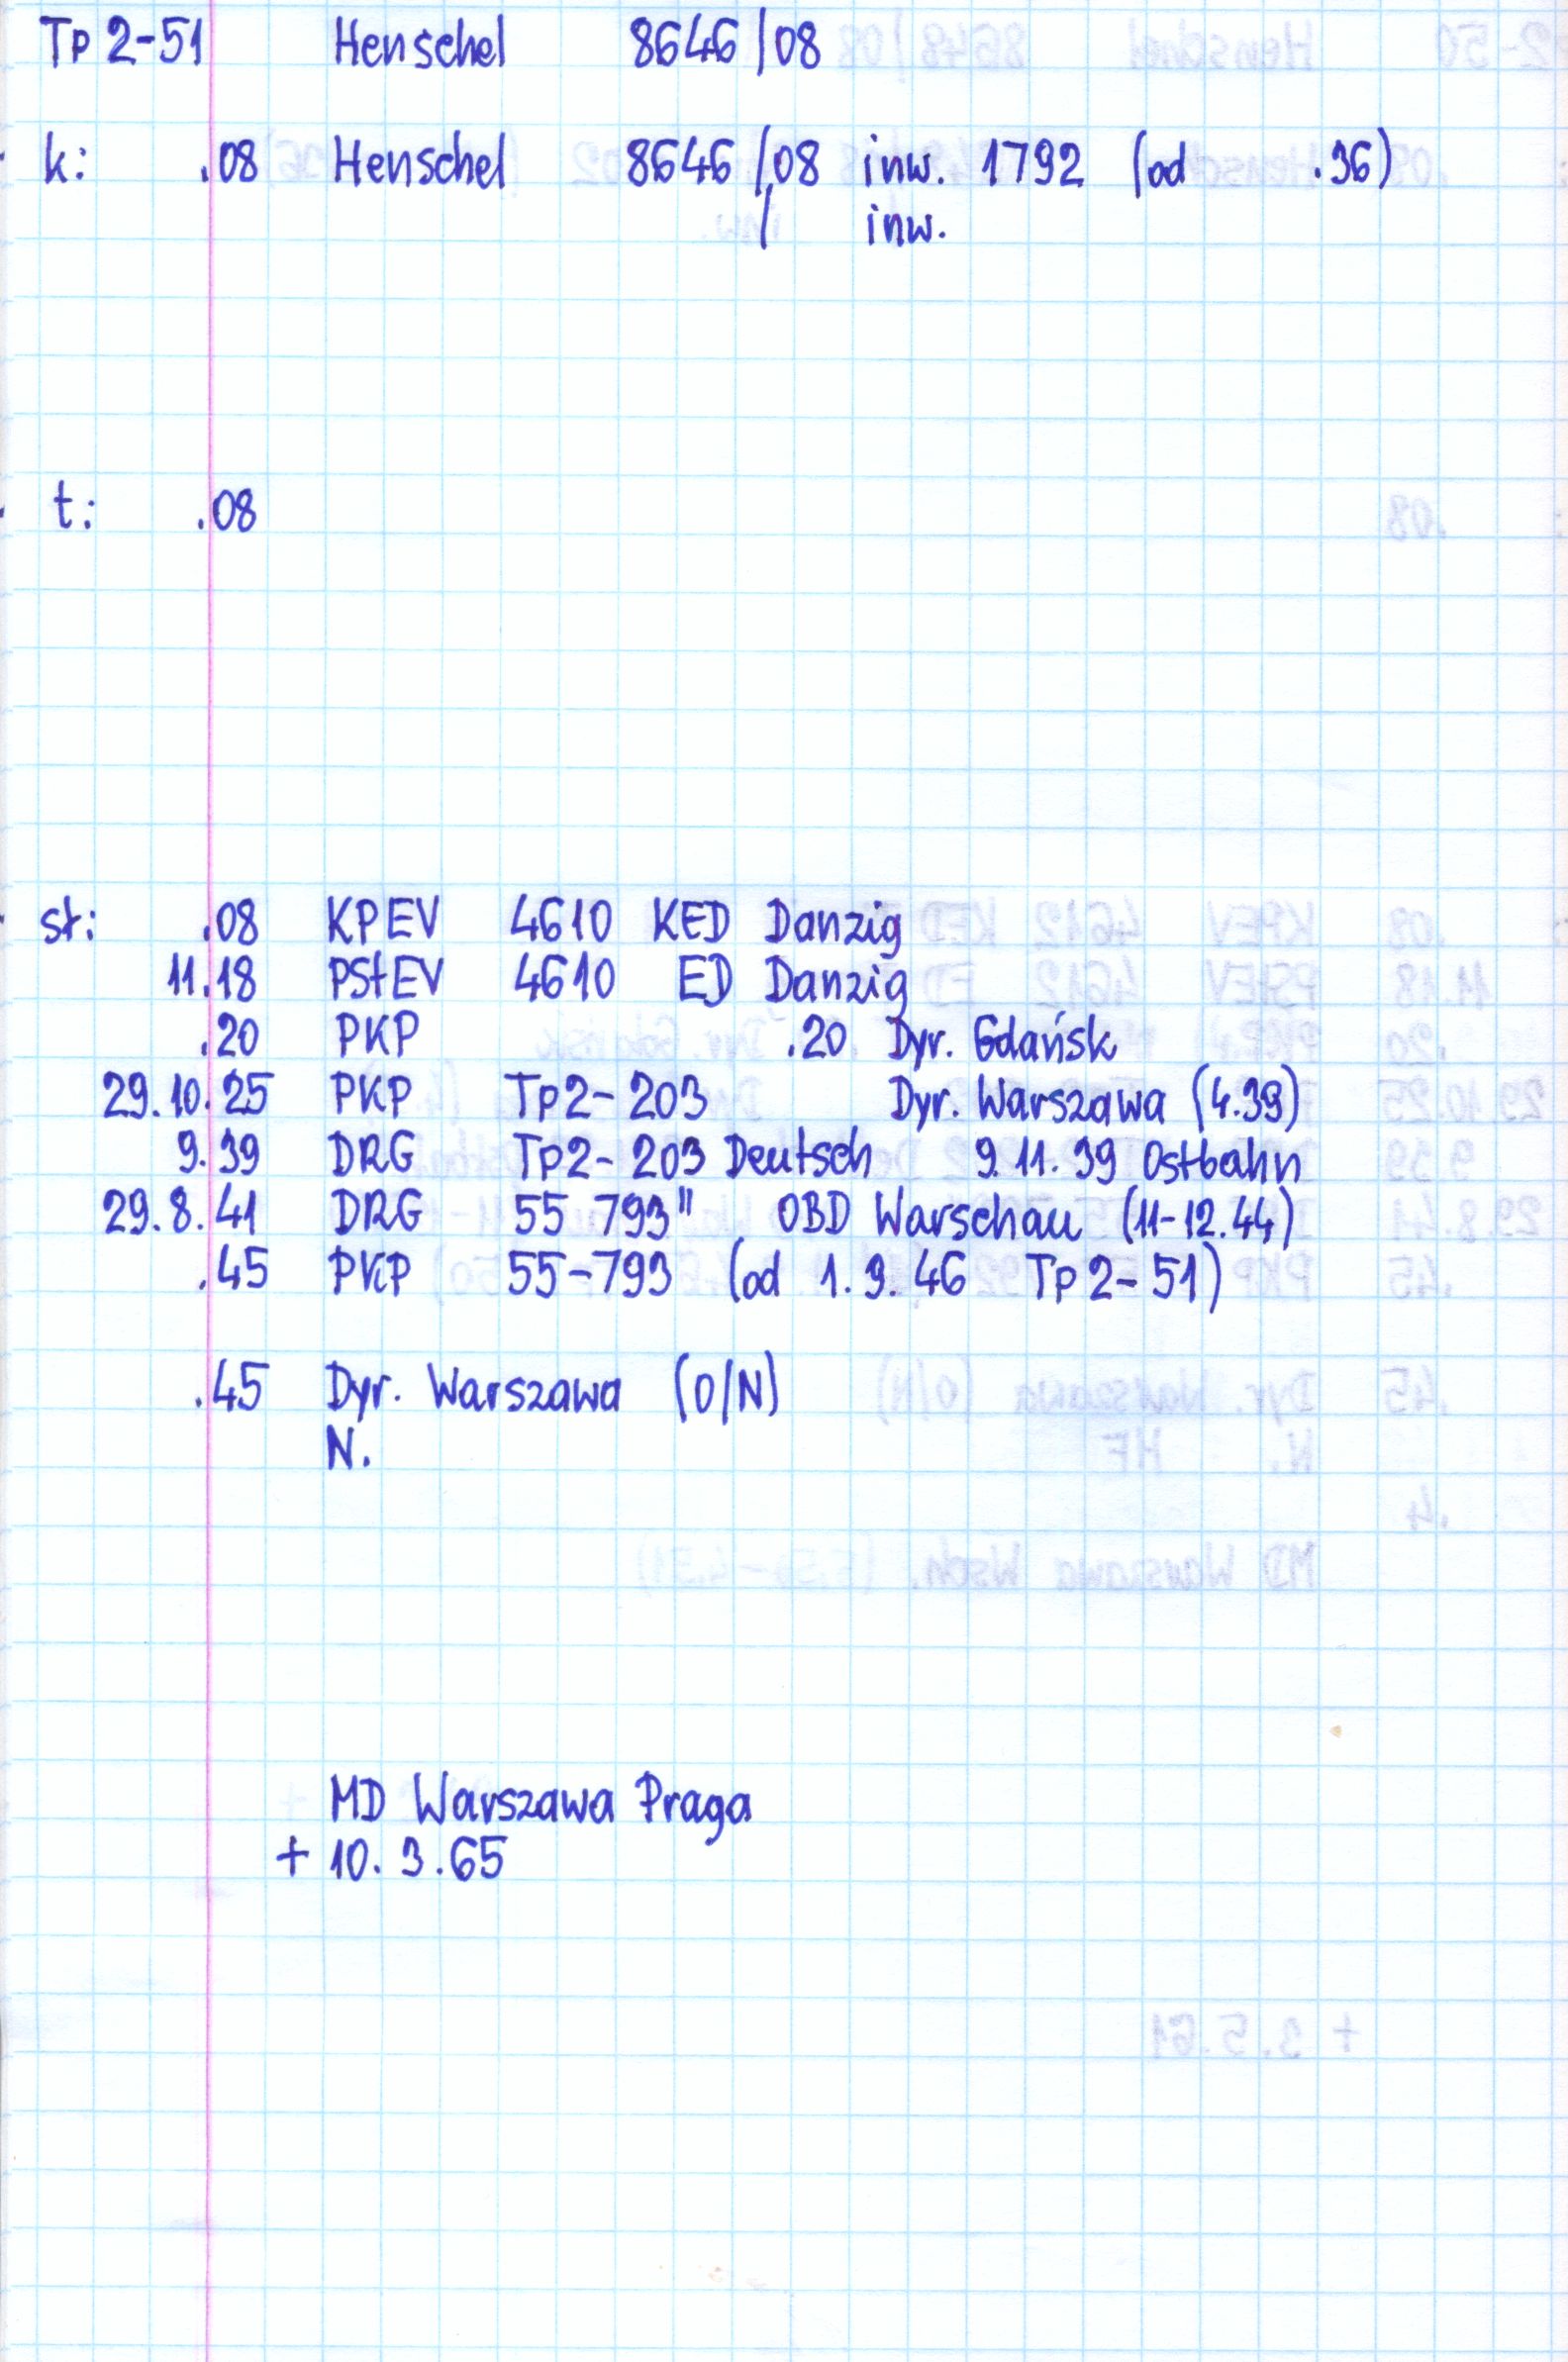 Tp 2-51 Henschel 8646/08
k: .08 Henschel 8646/08 inw. 1792 (od .36)
/ inw.
t: .08
st: .08 KPEV 4610 KED Danzig
11.18 PStEV 4610 ED Danzig
.20 PKP .20 Dyr. Gdańsk
29.10.25 PKP Tp2-203 Dyr. Warszawa (4.39)
9.39 DRG Tp2-203 Deutsch 9.11.39 Ostbahn
29.8.41 DRG 55 793" OBD Warschau (11-12.44)
.45 PKP 55-793 (od 1.9.46 Tp2-51)
.45 Dyr. Warszawa (O/N)
N.
MD Warszawa Praga
+ 10.3.65